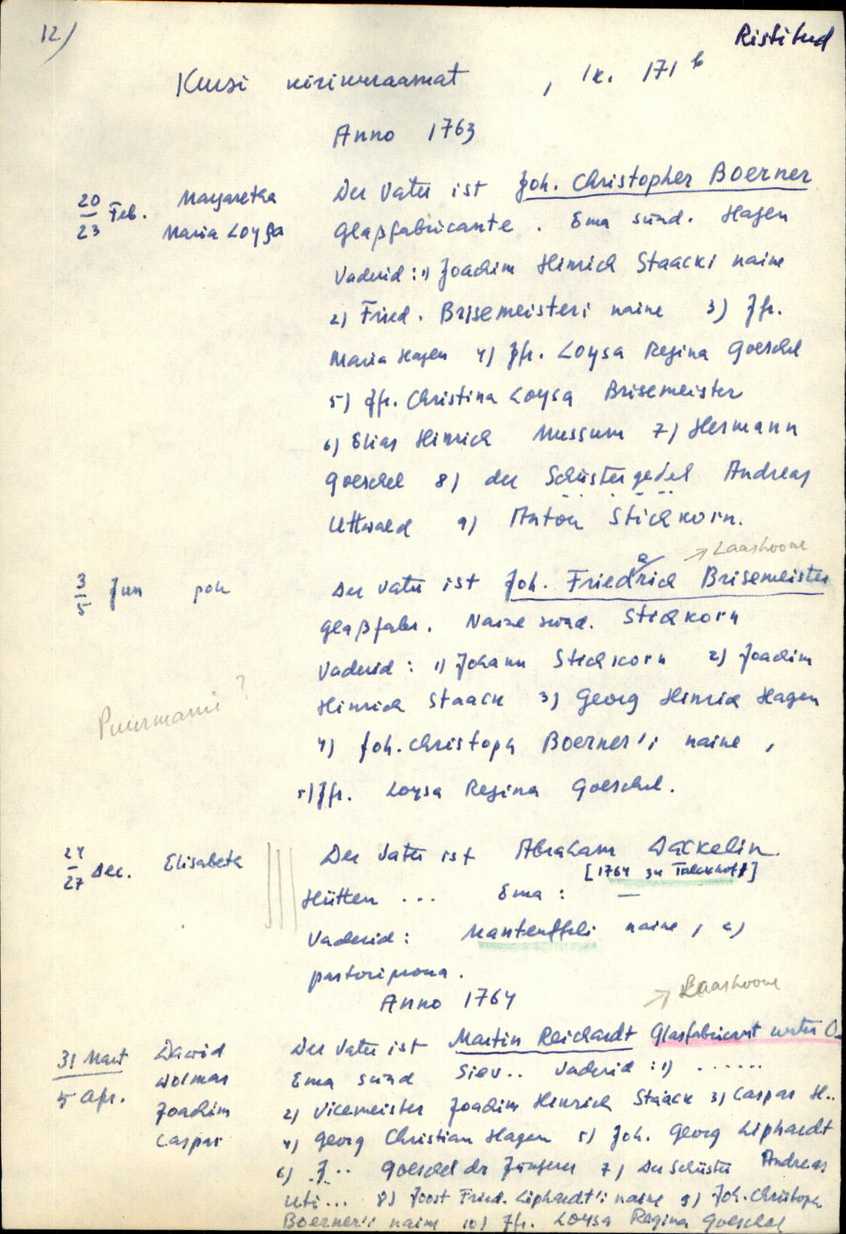 12) Ristitud
Kursi kirikuraamat, lk. 171 b
Anno 1763
20/23 Feb. Margaretha Der Vater ist Joh. Christopher Boerner
Maria Loysa Glaßfabricante. Ema sünd. Hagen
Vaderid: 1) Joachim Hinrich Staacki naine
2) Fried. Brisemeisteri naine 3) Jfr.
Maria Hagen 4) Jfr. Loysa Regina Goeschel
5) Jfr. Christina Loysa Brisemeister
6) Elias Hinrich Mussum 7) Hermann
Goeschel 8) der Schüstergesel Andreas
Uttwald 9) Anton Stichkorn.
→ Laashoone
3/5 Jun poh Der Vater ist Joh. Friedrich Brisemeister
glaßfabr. Naine sünd. Stichkorn
Vaderid: 1) Johann Stichkorn 2) Joachim
Hinrich Staack 3) Georg Hinrich Hagen
Puurmanni?
4) Joh. Christoph Boerner'i naine,
5) Jfr. Loysa Regina Goeschel.
24/27 Dec. Elisabeth Der Vater ist Abraham Dackelin.
[1764 zu Talckhoff]
Hütten ... Ema: —
Vaderid: Manteuffeli naine, a)
pastoriproua.
Anno 1764
→ Laashoone
31 Mart David Der Vater ist Martin Reichardt Glasfabricant unter O
5 Apr. Wolmar Ema sünd Siev.. Vaderid: 1) ......
Joachim 2) Vicemeister Joachim Hinrich Staack 3) Caspar H..
Caspar 4) Georg Christian Hagen 5) Joh. Georg Liphardt
6) J... Goeschel der Jüngere 7) Der Schüster Andreas
Utt... 8) Joost Fried. Liphardt'i naine 9) Joh. Christoph
Boerner'i naine 10) Jfr. Loysa Regina Goeschel